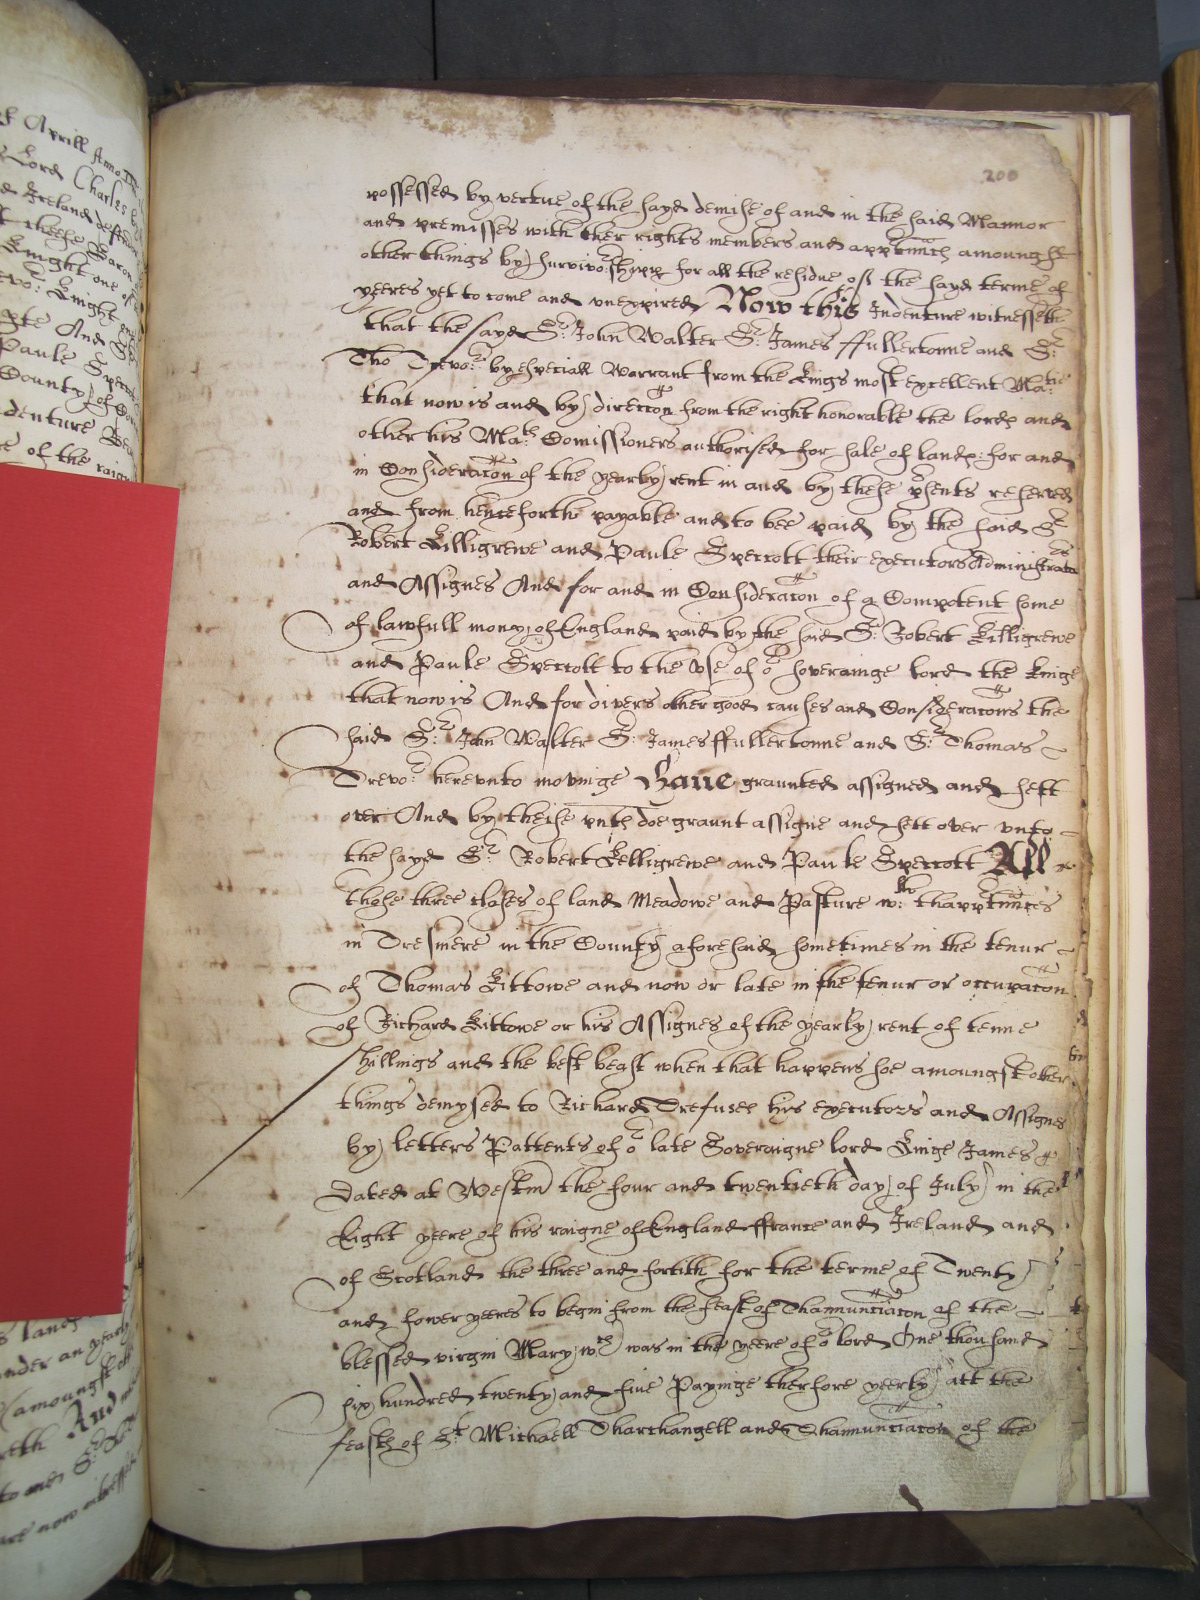 of Aprill Anno
Lord Charles
Ireland
these Baron
Knight one of
Knight
And
Paule
County of
denture
of the raign
200
possessed by vertue of the sayd demise of and in the said Mannor
and premisses with ther rights members and apptnncs amoungst
other things by survivo:r shipp for all the residue of the sayd terme of
yeeres yet to come and vnexpired Now this Indenture witnesseth
that the sayd Sr: John Walter Sr: James ffullertonne and Sr:
Tho Trevo:r by especiall Warrant from the Kings most excellent Ma:tie
that now is and by direccon from the right honorable the lords and
other his Ma:ts Comissioners authorised for sale of lands: for and
in Consideracon of the yearly rent in and by these psents reserved
and from henceforth payable and to bee paid by the said Sr
Robert Killigrewe and Paule Speccott their executors Administrators
and Assignes And for and in Consideracon of a Compotent some
of lawfull money of England paid by the said Sr: Robert Killigrewe
and Paule Speccott to the vse of or soverainge lord the Kinge
that now is And for divers other good causes and Consideracons the
said Sr: John Walter Sr: James ffullertonne and Sr: Thomas
Trevo:r herevnto movinge Haue graunted assigned and sett
over And by theise pnts doe graunt assigne and sett over vnto
the sayd Sr: Robert Kelligrewe and Paule Speccott All
those three closes of land Meadowe and Pasture w:th thapptnncs
in Tresmere in the County aforesaid sometimes in the tenur
of Thomas Kittowe and now or late in the tenur or occupacon
of Richard Kittowe or his Assignes of the yearly rent of tenne
shillings and the best beast when that happens soe amoungst other
things demysed to Richard Trefusee his executors and Assignes
by letters Pattents of or late Soveraigne lord Kinge James
Dated at Westm the four and twentieth day of July in the
Eight yeere of his raigne of England ffrance and Ireland and
of Scotland the three and fortith for the terme of Twenty
and fower yeeres to begin from the feast of Thannunciacon of the
blessed virgin Mary wch was in the yeere of or lord One thousand
six hundred twenty and five Payinge therfore yeerly att the
feasts of St Michaell Tharchangell and Thannunciacon of the
lands
under an yearly
amoungst
And
now